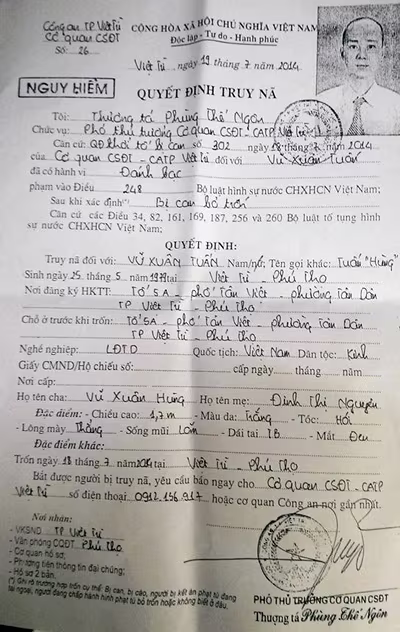 Công an TP Việt Trì
CỘNG HÒA XÃ HỘI CHỦ NGHĨA VIỆT NAM
Cơ quan CSĐT
Độc lập - Tự do - Hạnh phúc
Số: 26
Việt Trì, ngày 19 tháng 7 năm 2014
NGUY HIỂM
QUYẾT ĐỊNH TRUY NÃ
Tôi: Thượng tá Phùng Thế Ngôn
Chức vụ: Phó thủ trưởng Cơ quan CSĐT - CATP Việt Trì
Căn cứ: QĐ khởi tố bị can số 302 ngày 18 tháng 7 năm 2014
của Cơ quan CSĐT - CATP Việt Trì đối với Vũ Xuân Tuấn
đã có hành vi Đánh bạc
phạm vào Điều 248 Bộ luật hình sự nước CHXHCN Việt Nam;
Sau khi xác định(*) Bị can bỏ trốn
Căn cứ các Điều 34, 82, 161, 169, 187, 256 và 260 Bộ luật tố tụng hình
sự nước CHXHCN Việt Nam;
QUYẾT ĐỊNH:
Truy nã đối với: VŨ XUÂN TUẤN Nam/nữ; Tên gọi khác: Tuấn "Hưng"
Sinh ngày 25 tháng 5 năm tại Việt Trì - Phú Thọ
Nơi đăng ký HKTT: Tổ 5A - phố Tân Việt - phường Tân Dân
TP Việt Trì - Phú Thọ
Chỗ ở trước khi trốn: Tổ 5A - phố Tân Việt - phường Tân Dân
TP Việt Trì - Phú Thọ
Nghề nghiệp: LĐTD Quốc tịch: Việt Nam Dân tộc: Kinh
Giấy CMND/Hộ chiếu số: cấp ngày tháng năm
Nơi cấp:
Họ tên cha: Vũ Xuân Hưng Họ tên mẹ: Đinh Thị Nguyên
Đặc điểm: - Chiều cao: 1,7 m - Màu da: Trắng - Tóc: Hói
- Lông mày Thẳng - Sống mũi Lõm - Dái tai TB - Mắt Đen
Đặc điểm khác:
Trốn ngày 18 tháng 7 năm 2014 tại Việt Trì - Phú Thọ
Bắt được người bị truy nã, yêu cầu báo ngay cho Cơ quan CSĐT - CATP
Việt Trì số điện thoại 0912.156.917 hoặc cơ quan Công an nơi gần nhất.
Nơi nhận:
- VKSND TP Việt Trì
- Văn phòng CQĐT Phú Thọ
- Cơ quan hồ sơ;
- Phương tiện thông tin đại chúng;
- Hồ sơ 2 bản.
(*) Ghi rõ trường hợp cụ thể: Bị can, bị cáo, người bị kết án phạt tù đang
tại ngoại, người đang chấp hành hình phạt tù bỏ trốn hoặc không biết ở đâu.
PHÓ THỦ TRƯỞNG CƠ QUAN CSĐT
Thượng tá Phùng Thế Ngôn